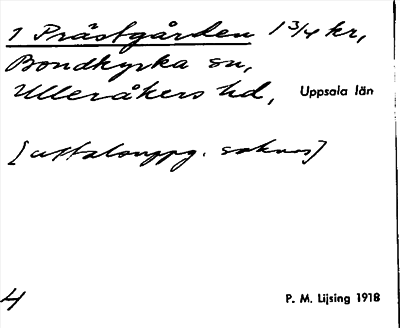 1 Prästgården 1 3/4 kr,
Bondkyrka sn,
Ulleråkers hd, Uppsala län
[uttalsuppg. saknas]
4 P. M. Lijsing 1918